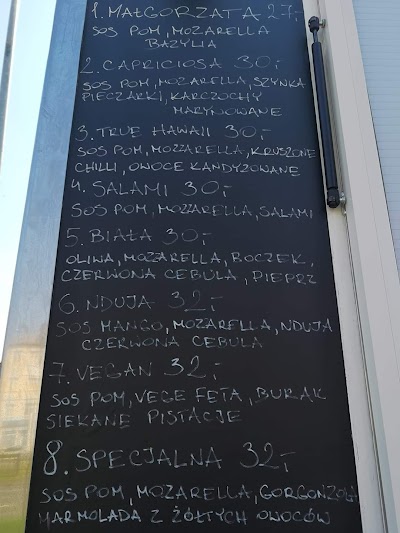 1. MAŁGORZATA 27,-
SOS POM, MOZARELLA
BAZYLIA
2. CAPRICIOSA 30,-
SOS POM, MOZARELLA, SZYNKA
PIECZARKI, KARCZOCHY
MARYNOWANE
3. TRUE HAWAII 30,-
SOS POM, MOZZARELLA, KRUSZONE
CHILLI, OWOCE KANDYZOWANE
4. SALAMI 30,-
SOS POM, MOZZARELLA, SALAMI
5. BIAŁA 30,-
OLIWA, MOZARELLA, BOCZEK,
CZERWONA CEBULA, PIEPRZ
6. NDUJA 32,-
SOS MANGO, MOZARELLA, NDUJA
CZERWONA CEBULA
7. VEGAN 32,-
SOS POM, VEGE FETA, BURAK
SIEKANE PISTACJE
8. SPECJALNA 32,-
SOS POM, MOZARELLA, GORGONZOLA
MARMOLADA Z ŻÓŁTYCH OWOCÓW